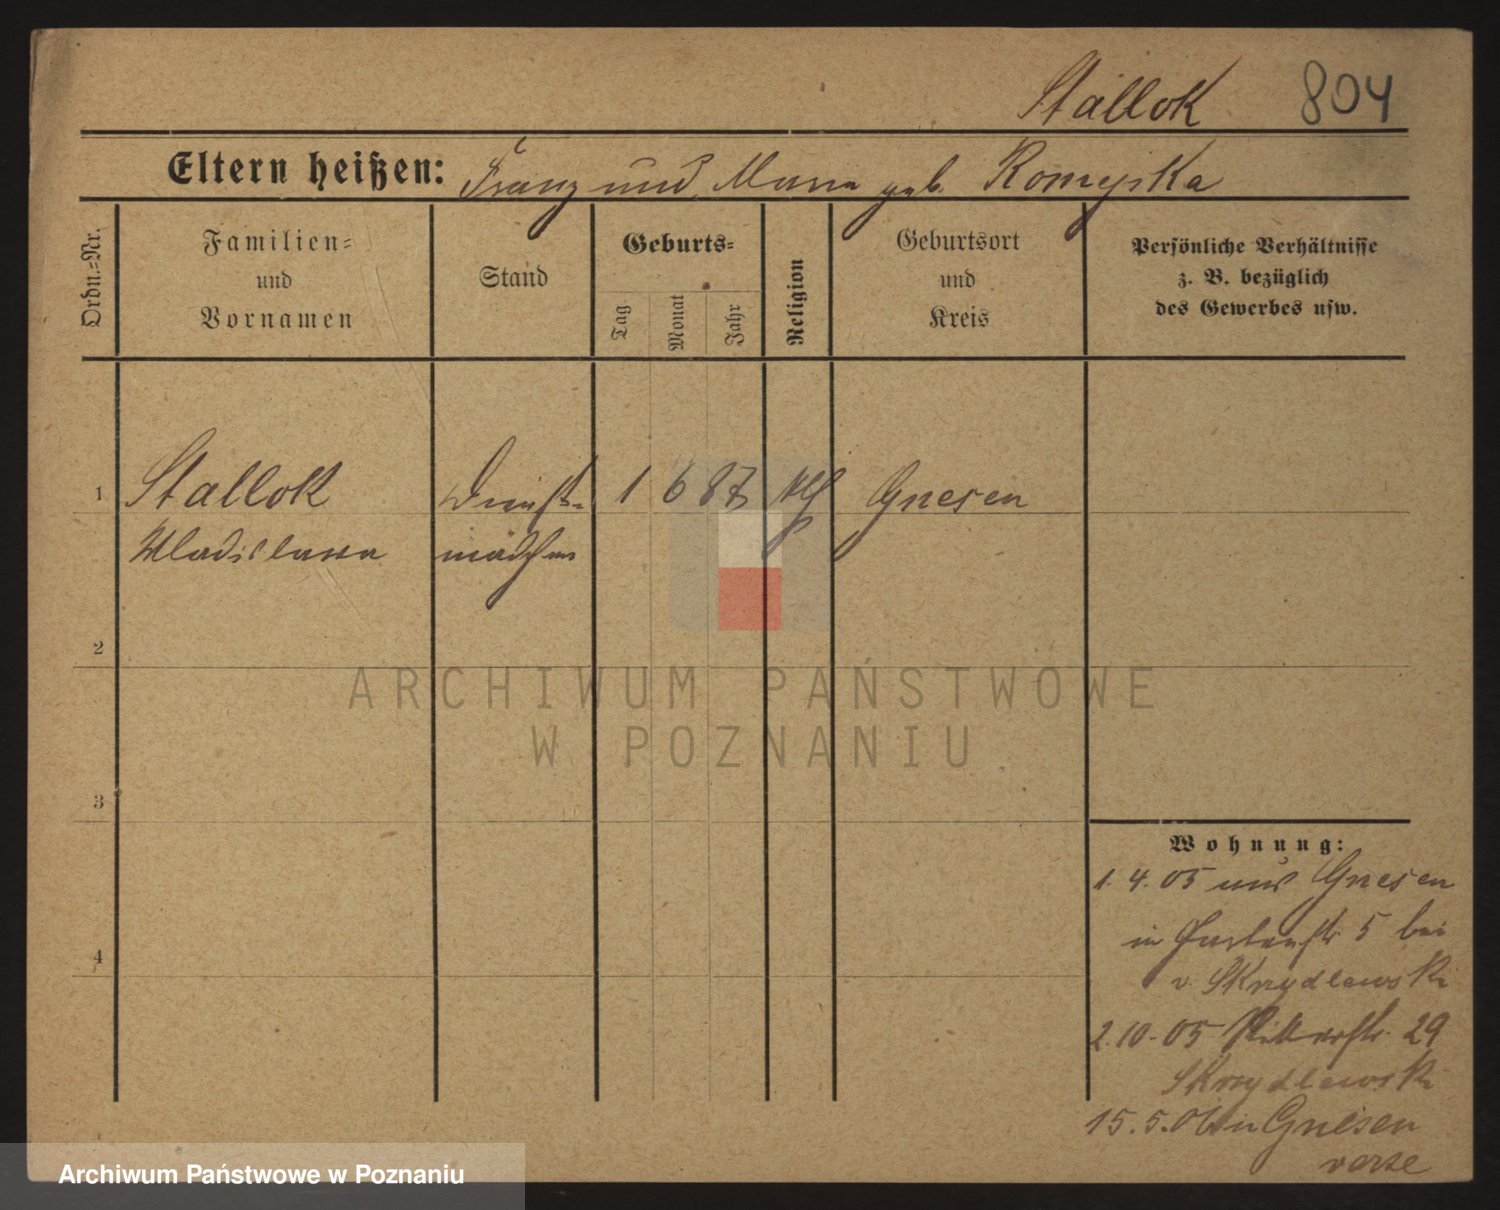 Stallok 804
Eltern heißen: Franz und Maria geb.
Ordn.-Nr.
Familien-
und
Vornamen
Stand
Geburts-
Tag
Monat
Jahr
Religion
Geburtsort
und
Kreis
Persönliche Verhältnisse
z. B. bezüglich
des Gewerbes usw.
1 Stallok Dienst- 1 6 87 Gnesen
Wladislawa mädchen
2
3
4
Wohnung:
1. 4. 05 aus Gnesen
in Gartenstr. 5 bei
v. Skrzydlewski
2. 10. 05 Ritterstr. 29
Skrzydlewski
15. 5. 06 in Gnesen
ARCHIWUM PAŃSTWOWE
W POZNANIU
Archiwum Państwowe w Poznaniu